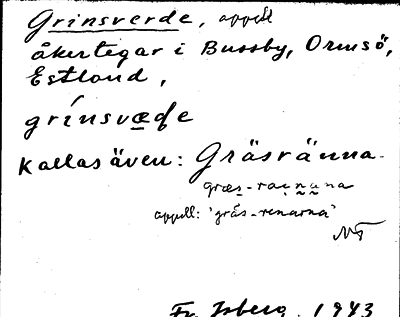 Grinsverde, appell
åkertegar i Bussby, Ormsö,
Estland,
grínsvæḍe
Kallas även: Gräsränna.
græs-raenuna
appell: 'gräs-renarna'
Fr. Isberg. 1943